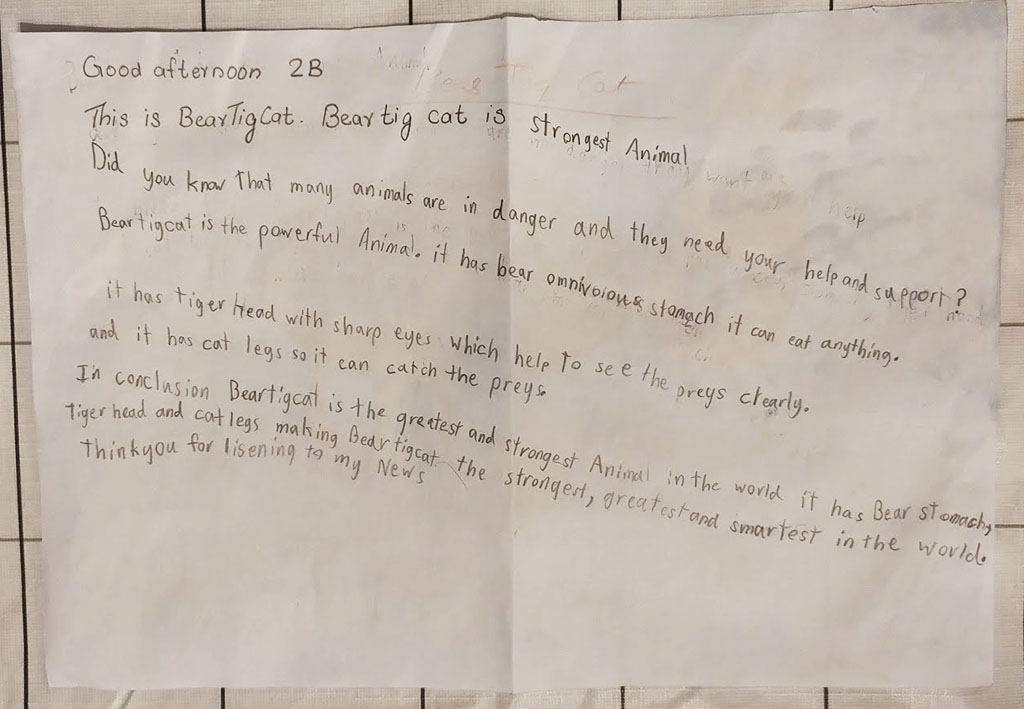 Good afternoon 2B
This is BearTigCat. Beartig cat is strongest Animal
Did you know That many animals are in danger and they need your help and support?
Beartigcat is the powerful Animal. it has bear omnivoious stomach it can eat anything.
it has tiger Head with sharp eyes which help To see the preys clearly.
and it has cat legs so it can catch the preys.
In conclusion Beartigcat is the greatest and strongest Animal in the world it has Bear stomach,
Tiger head and cat legs making Beartigcat the strongest, greatest and smartest in the world.
Thinkyou for lisening to my News